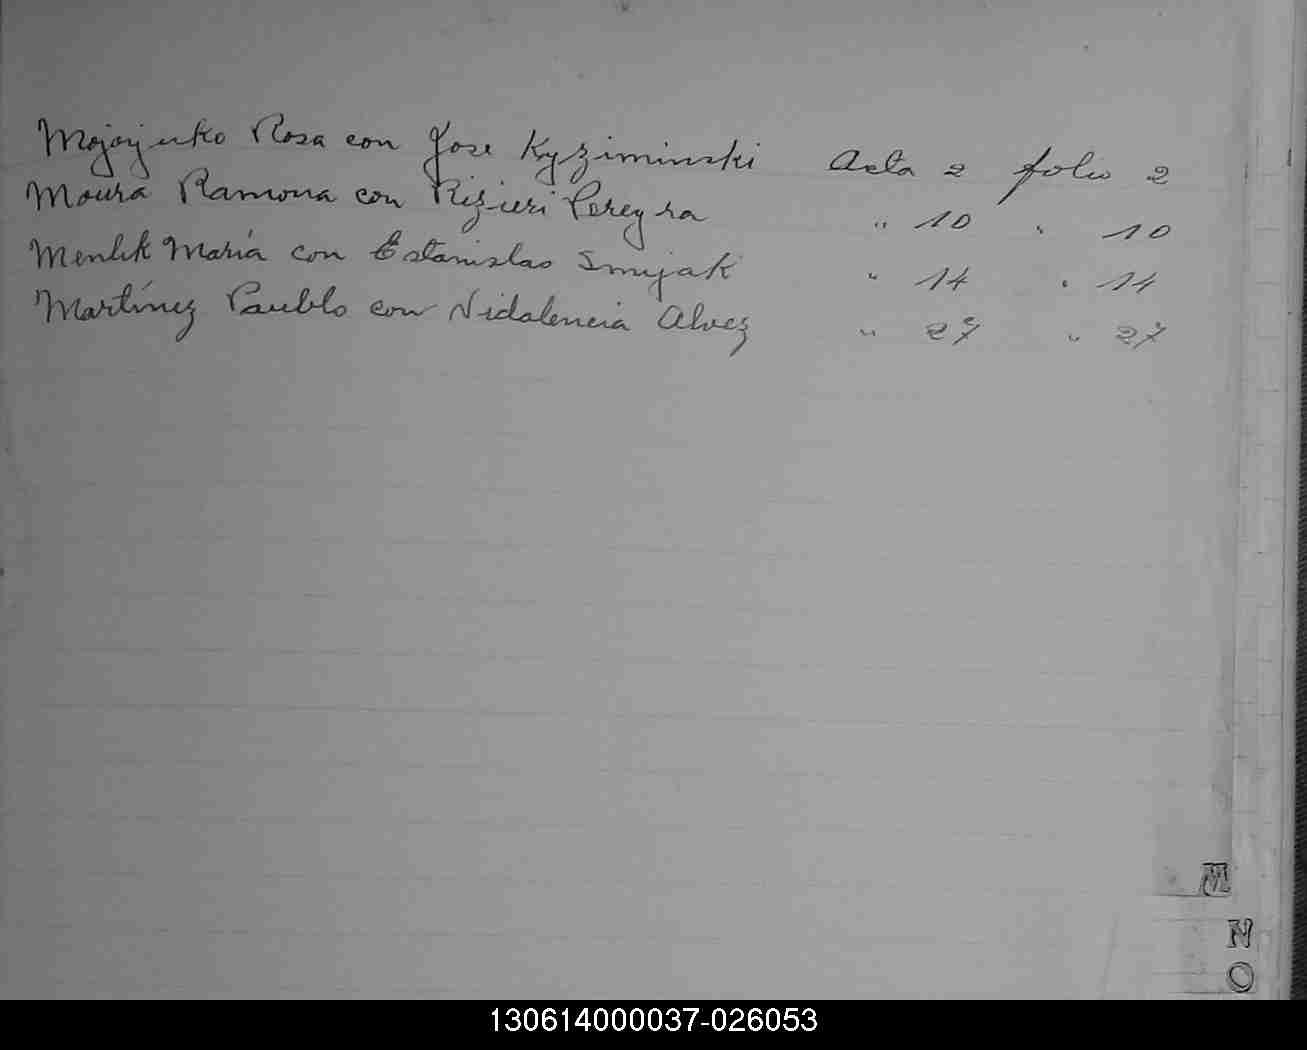 Mojoyuko Rosa con Jose Kyziminski Acta 2 folio 2
Moura Ramona con Rizieri Pereyra " 10 " 10
Menlik María con Estanislao Smyak " 14 " 14
Martínez Paublo con Vidalencia Alvez " 27 " 27
M
N
O
130614000037-026053